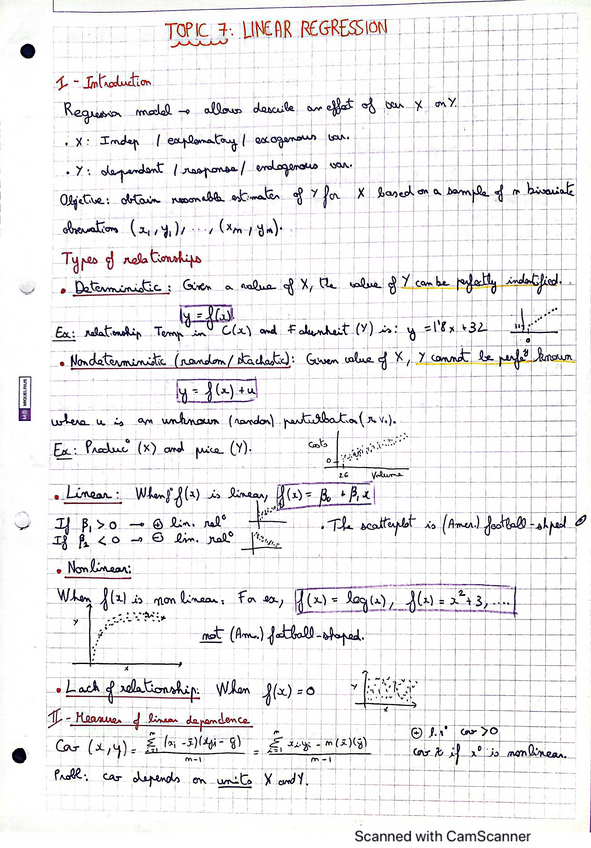 TOPIC 7: LINEAR REGRESSION
I - Introduction
Regression model → allows describe an effect of var X on Y.
• X: Indep / explanatory / exogenous var.
• Y: dependent / response / endogenous var.
Objetive: obtain reasonable estimates of Y for X based on a sample of n bivariate
observations (x₁, y₁), ..., (xₙ, yₙ).
Types of relationships
• Deterministic: Given a value of X, the value of Y can be perfectly indentified.
y = f(x)
Ex: relationship Temp in C(x) and Fahrenheit (Y) is: y = 1'8x + 32
• Nondeterministic (random/stochastic): Given value of X, Y cannot be perf known
y = f(x) + u
where u is an unknown (random) perturbation (r.v.).
Ex: Produc° (X) and price (Y).
Costs
0
26 Volume
• Linear: When f(x) is linear, f(x) = β₀ + β₁x
If β₁ > 0 → ⊕ lin. rel°
• The scatterplot is (Amer.) football-shped
If β₁ < 0 → ⊖ lin. rel°
• Nonlinear:
When f(x) is non linear. For ex, f(x) = log(x), f(x) = x² + 3, ....
y
x
not (Am.) football-shaped.
• Lack of relationship: When f(x) = 0
Y
x
II - Measures of linear dependence
Cov (x,y) = Σⁿᵢ₌₁ (xᵢ - x̄)(yᵢ - ȳ) / n-1 = Σⁿᵢ₌₁ xᵢyᵢ - n(x̄)(ȳ) / n-1
⊕ cov > 0
cov if is nonlinear.
Probl: cov depends on units X and Y.
MIQUELRIUS
Scanned with CamScanner